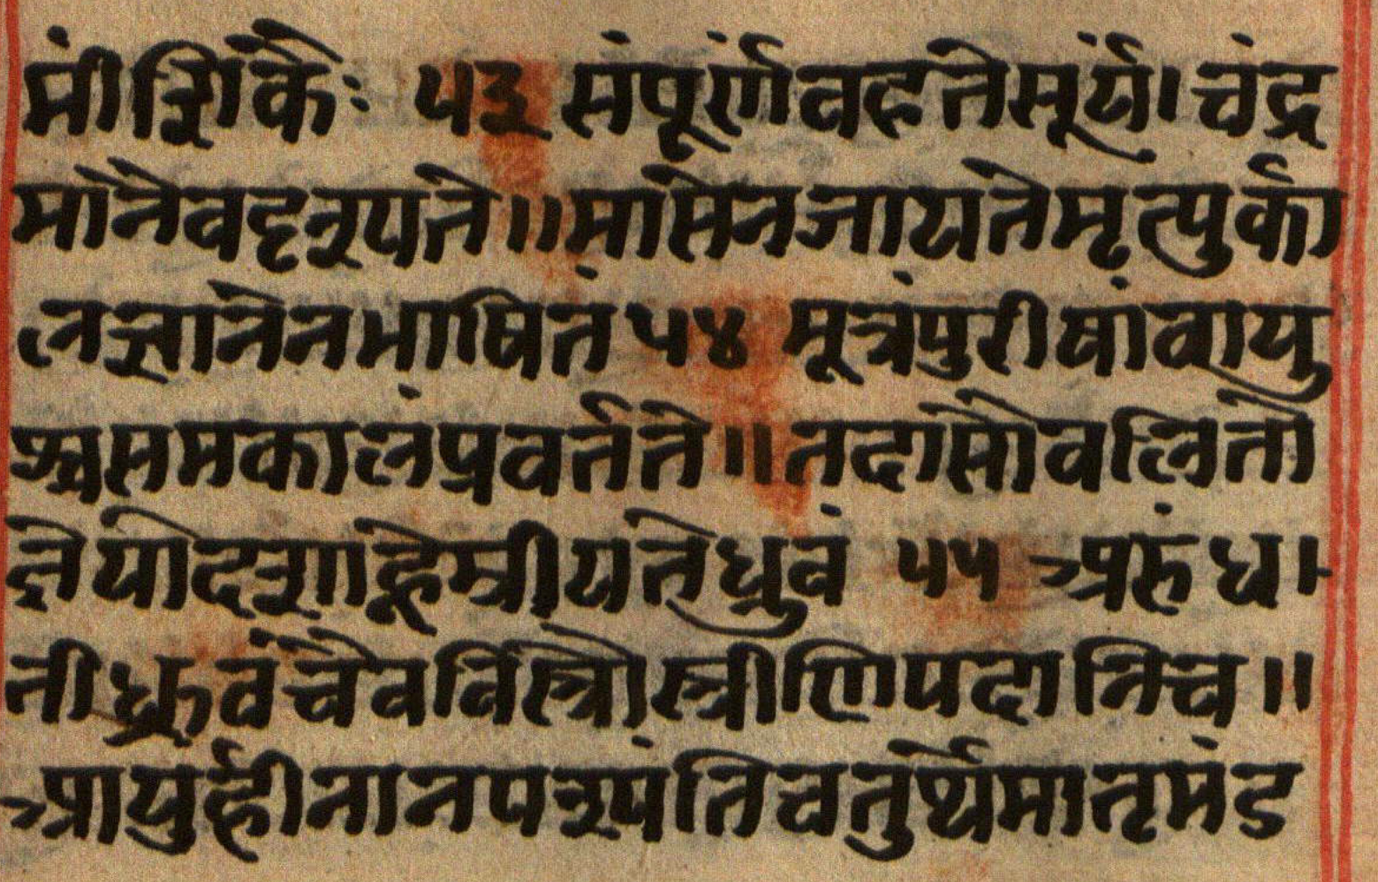 मीशिकैः ५३ संपूर्णं वहते सूर्यं। चंद्र
मा नैव दृश्यते ॥ मासेन जायते मृत्युर्का
लज्ञानेन भाषितं ५४ मूत्रं पुरीषं वायु
श्च समकालं प्रवर्तते ॥ तदासौ वलितो
ज्ञेयो दशाहे म्रीयते ध्रुवं ५५ अरुंध।
ती ध्रुवं चैव विस्त्रोस्त्रीणि पदानि च ॥
आयुर्हीना न पश्यंति चतुर्थं मातृमंड